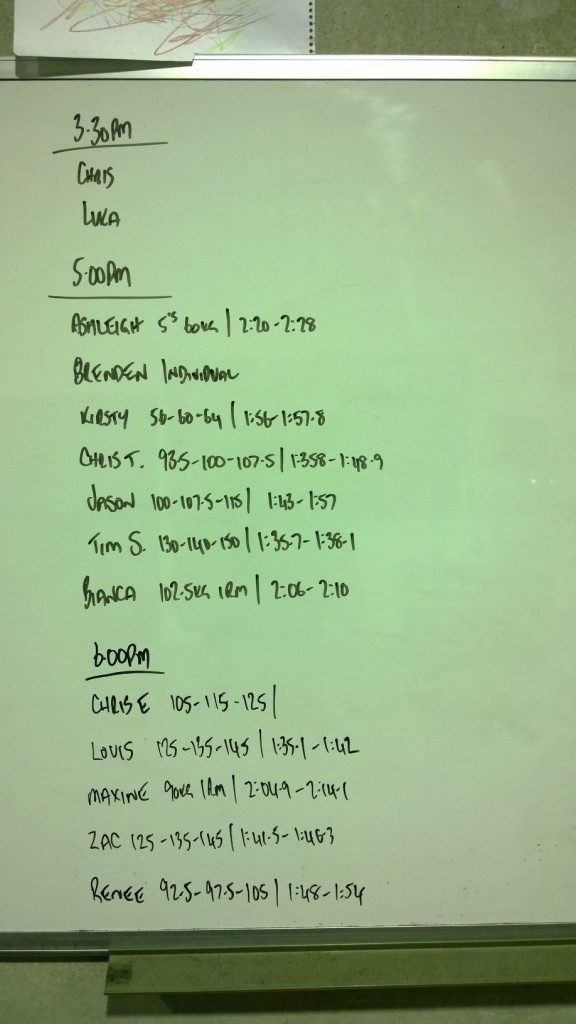 3.30PM
CHRIS
LUKA
5.00PM
ASHLEIGH 5'S 60KG | 2:20-2:28
BRENDEN INDIVIDUAL
KIRSTY 56-60-64 | 1:56-1:57.8
CHRIS T. 93.5-100-107.5 | 1:35.8-1:48.9
JASON 100-107.5-115 | 1:43-1:57
TIM S. 130-140-150 | 1:35.7-1:38.1
BIANCA 102.5KG 1RM | 2:06-2:10
6.00PM
CHRIS E 105-115-125 |
LOUIS 125-135-145 | 1:35.1-1:42
MAXINE 90KG 1RM | 2:04.9-2:14.1
ZAC 125-135-145 | 1:41.5-1:46.3
RENEE 92.5-97.5-105 | 1:48-1:54